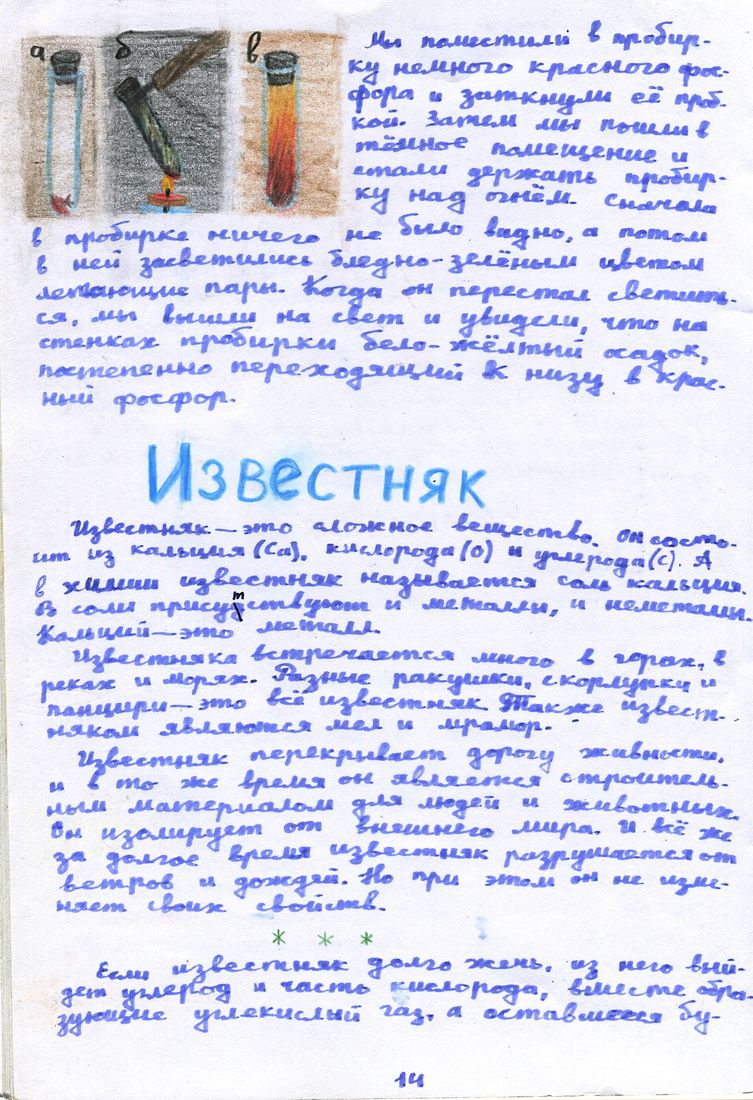 а б в
Мы поместили в пробир-
ку немного красного фос-
фора и заткнули её проб-
кой. Затем мы пошли в
тёмное помещение и
стали держать пробир-
ку над огнём. Сначала
в пробирке ничего не было видно, а потом
в ней засветились бледно-зелёным цветом
летающие пары. Когда он перестал светить-
ся, мы вышли на свет и увидели, что на
стенках пробирки бело-жёлтый осадок,
постепенно переходящий к низу в крас-
ный фосфор.
Известняк
Известняк — это сложное вещество. Он состо-
ит из кальция (Ca), кислорода (O) и углерода (C). А
в химии известняк называется соль кальция.
В соли присутствуют и металлы, и неметаллы.
Кальций — это металл.
Известняка встречается много в горах, в
реках и морях. Разные ракушки, скорлупки и
панцири — это всё известняк. Также извест-
няком являются мел и мрамор.
Известняк перекрывает дорогу живности,
и в то же время он является строитель-
ным материалом для людей и животных.
Он изолирует от внешнего мира. И всё же
за долгое время известняк разрушается от
ветров и дождей. Но при этом он не изме-
няет своих свойств.
* * *
Если известняк долго жечь, из него вый-
дет углерод и часть кислорода, вместе обра-
зующие углекислый газ, а оставшееся бу-
14